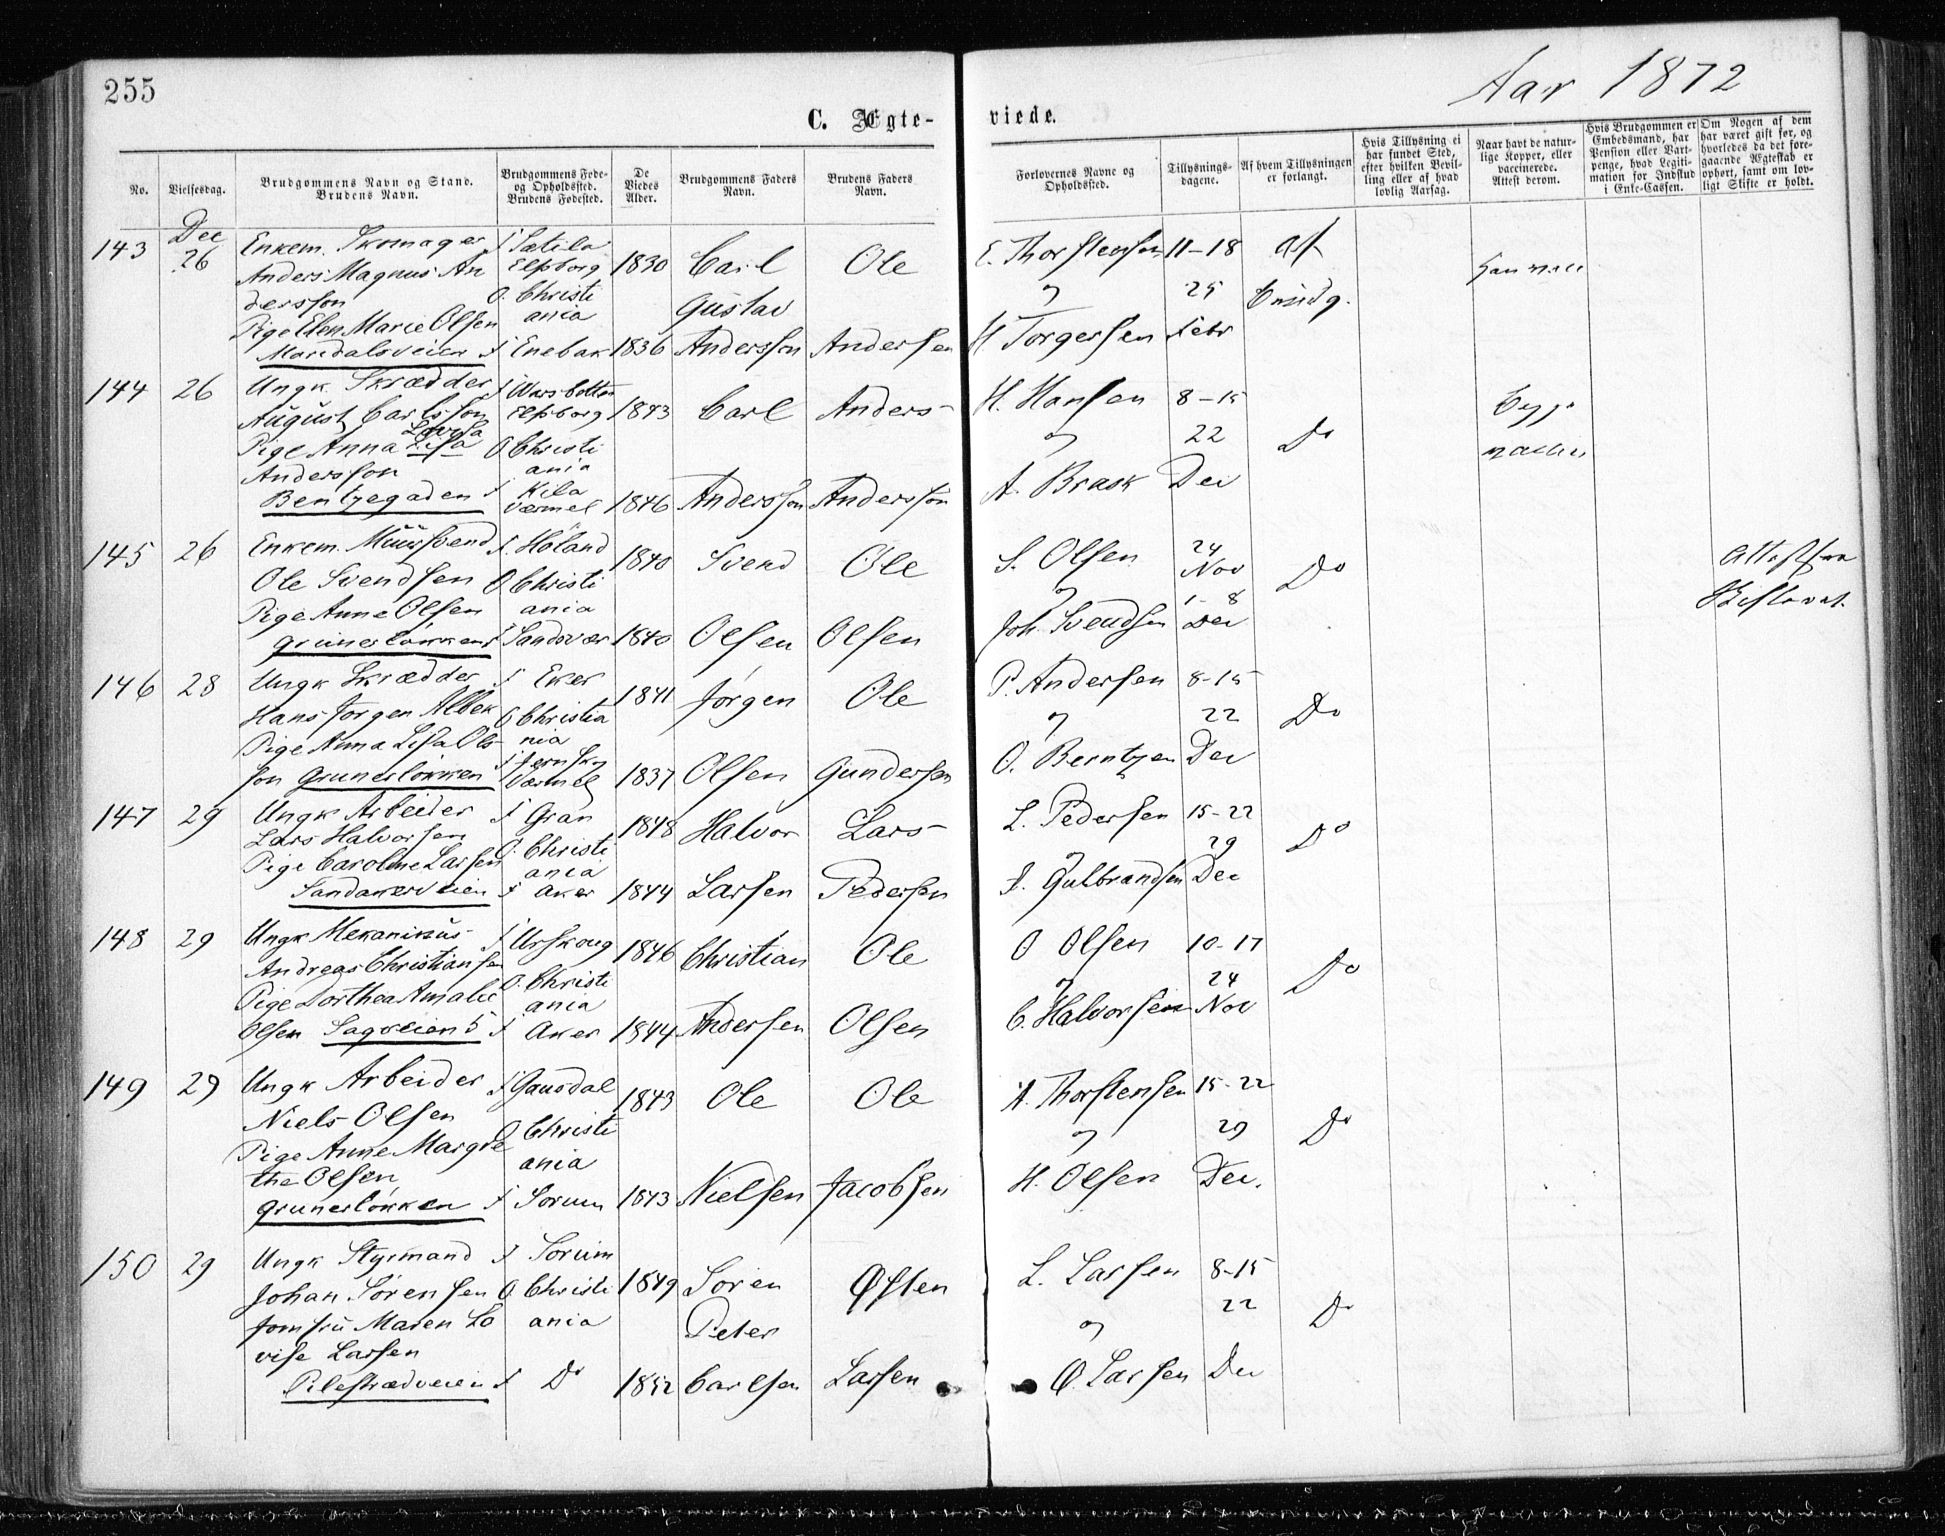 255
Aar 1872
C. Ægte-
viede.
No.
Vielsesdag.
Brudgommens Navn og Stand.
Brudens Navn.
Brudgommens Føde-
og Opholdssted.
Brudens Fødested.
De
Viedes
Alder.
Brudgommens Faders
Navn.
Brudens Faders
Navn.
Forlovernes Navne og
Opholdssted.
Tillysnings-
dagene.
Af hvem Tillysningen
er forlangt.
Hvis Tillysning ei
har fundet Sted,
efter hvilken Bevil-
ling eller af hvad
lovlig Aarsag.
Naar havt de natur-
lige Kopper, eller
vaccinerede.
Attest derom.
Hvis Brudgommen er
Embedsmand, har
Pension eller Vart-
penge, hvad Legiti-
mation for Indskud
i Enke-Cassen.
Om Nogen af dem
har været gift før, og
hvorledes da det fore-
gaaende Ægteskab er
ophørt, samt om lov-
ligt Skifte er holdt.
Dec
143 26 Enkem. Skomager f Sætila 1830 Carl Ole E. Thorstensen 11-18 af
Anders Magnus An Elfsborg
dersson O. Christi Gustav og 25
Pige Elen Marie Olsen ania
Maridalsveien f Enebak 1836 Andersson Andersen H. Torgersen Febr
144 26 Ungk. Skrædder f 1843 Carl Anders H. Hansen 8-15 Begge
August Carlsson Elfsborg
Lovisa
Pige Anna Lisa O Christi og 22 Do
Andersson ania
Bentzegaden f Kila
Værmel 1846 Andersson Andersson A. Brask Dec
145 26 Enkem. Muursvend f. Høland 1840 Svend Ole S. Olsen 24 Nov Do
Ole Svendsen O Christi
Pige Anne Olsen ania og 1-8
Grünerløkken f Sandsvær 1840 Olsen Olsen Joh. Svendsen Dec
146 28 Ungk Skrædder f Eker 1841 Jørgen Ole P. Andersen 8-15
Hans Jørgen Albek O Christia og 22 Do
Pige Anna Lisa Ols nia
son Grunerløkken f Jernskog
Værmel 1837 Olsen Gundersen O. Berntzen Dec
147 29 Ungk Arbeider f Gran 1848 Halvor Lars L. Pedersen 15-22
Lars Halvorsen O. Christi og 29 Do
Pige Caroline Larsen ania
Sandakerveien f Aker 1844 Larsen Pedersen S. Gulbrandsen Dec
148 29 Ungk Mekanikus f Urskoug 1846 Christian Ole O Olsen 10-17
Andreas Christiansen O. Christi og 24 Do
Pige Dorthea Amalie ania
Olsen Sagveien 5 f Aker 1844 Andersen Olsen C. Halvorsen Nov
149 29 Ungk Arbeider f Gausdal 1843 Ole Ole A. Thorstensen 15-22
Niels Olsen O Christi og 29 Do
Pige Anne Margre ania
the Olsen
Grunerløkken f Sorum 1843 Nielsen Jacobsen H. Olsen Dec.
150 29 Ungk Styrmand f Sorum 1849 Soren Østen L. Larsen 8-15
Johan Sørensen O Christi
Jomfru Maren Lo ania Peter og 22 Do
vise Larsen
Pilestrædveien f Do 1852 Carlsen Larsen O. Larsen Dec